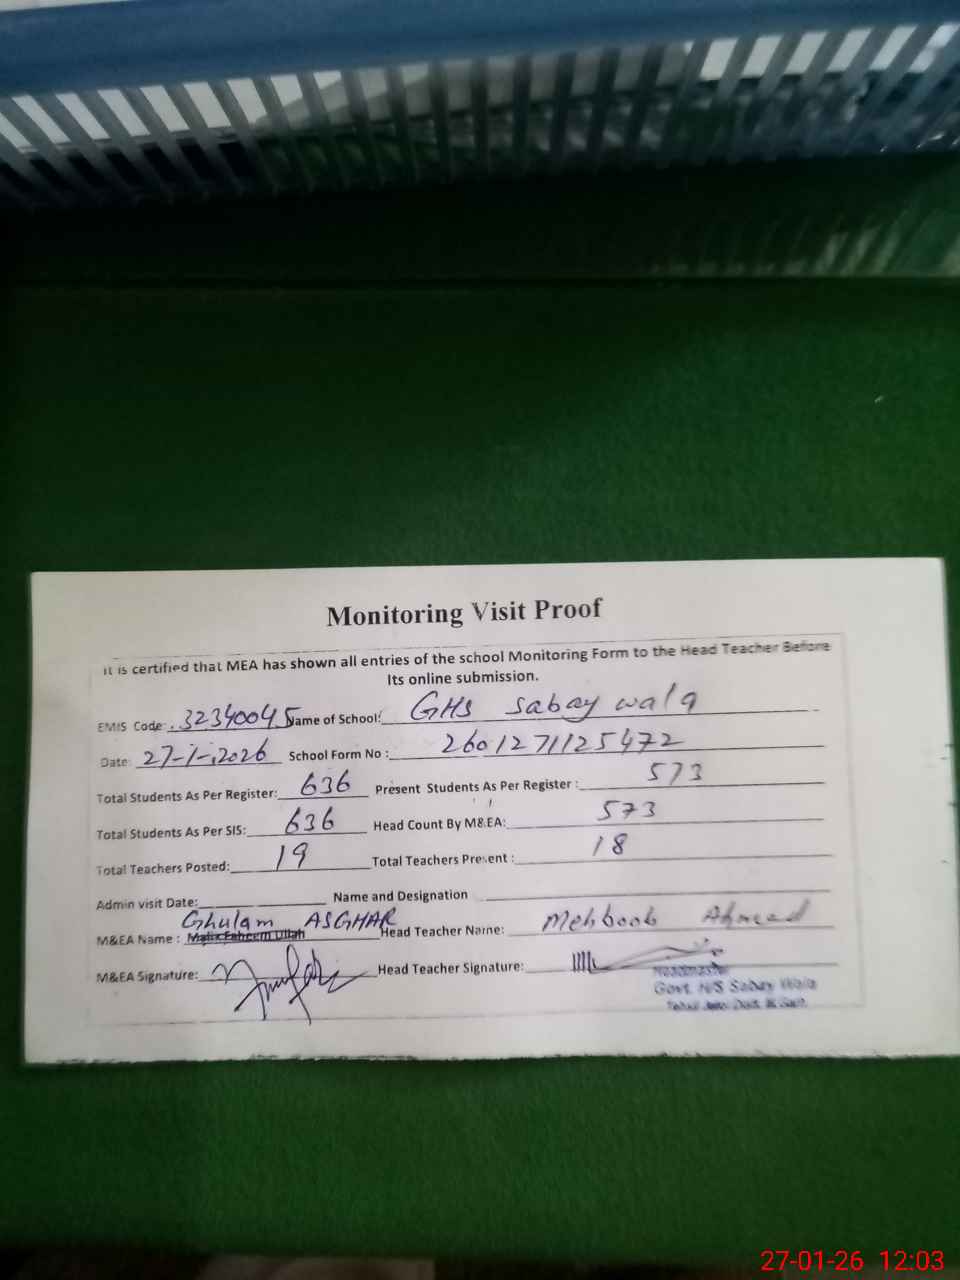 Monitoring Visit Proof
It is certified that MEA has shown all entries of the school Monitoring Form to the Head Teacher Before
Its online submission.
EMIS Code: 32340045 Name of School: GHS Sabay wala
Date: 27-1-2026 School Form No : 2601271125472
Total Students As Per Register: 636 Present Students As Per Register : 573
Total Students As Per SIS: 636 Head Count By M&EA: 573
Total Teachers Posted: 19 Total Teachers Present : 18
Admin visit Date: Name and Designation
Ghulam ASGHAR
M&EA Name : Malik Faheem Ullah Head Teacher Name: Mehboob Ahmad
M&EA Signature: Head Teacher Signature:
Headmaster
Govt. H/S Sabay Wala
27-01-26 12:03